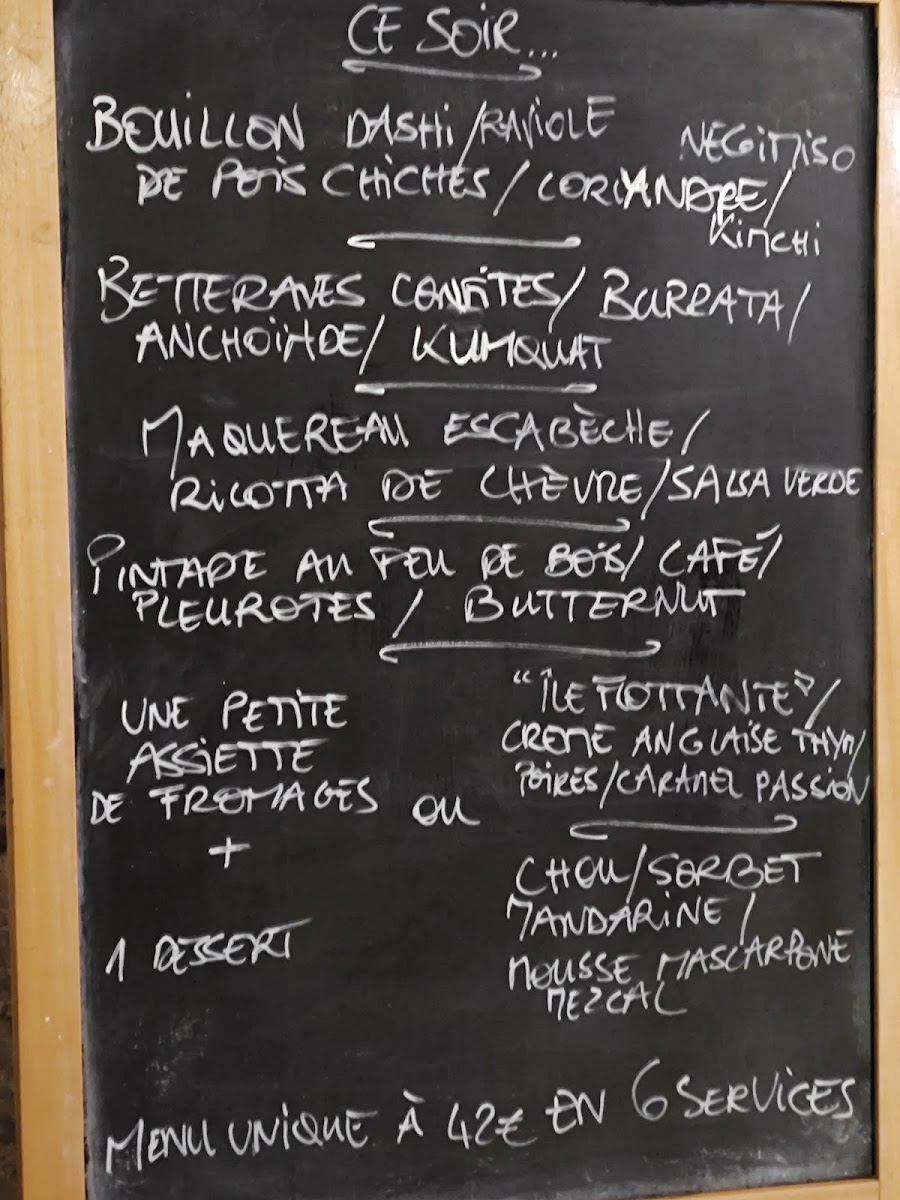 CE SOIR...
BOUILLON DASHI/RAVIOLE
NEGIMISO
DE POIS CHICHES/CORIANDRE/
KIMCHI
BETTERAVES CONFITES/BURRATA/
ANCHOÏADE/ KUMQUAT
MAQUEREAU ESCABÈCHE/
RICOTTA DE CHÈVRE/SALSA VERDE
PINTADE AU FEU DE BOIS/ CAFÉ/
PLEUROTES / BUTTERNUT
UNE PETITE
ASSIETTE
DE FROMAGES
+
1 DESSERT
OU
"ÎLE FLOTTANTE"/
CREME ANGLAISE THYM/
POIRES/CARAMEL PASSION
CHOU/SORBET
MANDARINE/
MOUSSE MASCARPONE
MEZCAL
MENU UNIQUE À 42€ EN 6 SERVICES